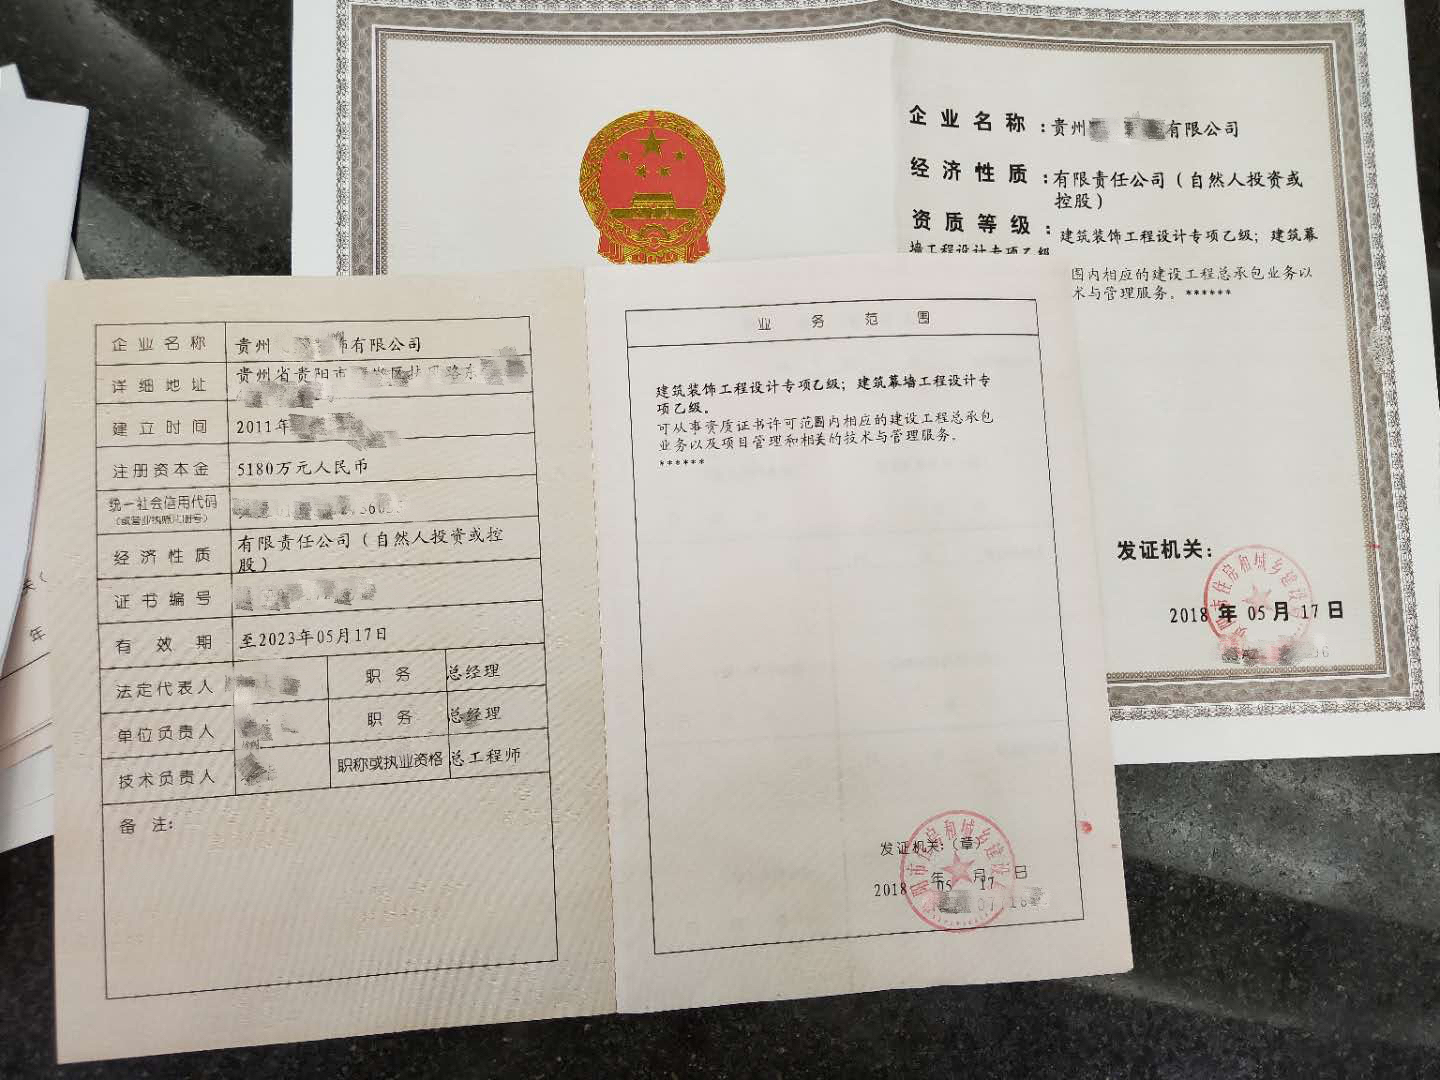 企业名称：贵州
有限公司
经济性质：有限责任公司（自然人投资或
控股）
资质等级：建筑装饰工程设计专项乙级；建筑幕
墙工程设计专项乙级
围内相应的建设工程总承包业务以
术与管理服务。******
发证机关：
市住房和城乡建设
2018 年 05 月 17 日
企业名称 贵州
饰有限公司
详细地址 贵州省贵阳市
路东
建立时间 2011年
注册资本金 5180万元人民币
统一社会信用代码
（或营业执照注册号）
经济性质 有限责任公司（自然人投资或控
股）
证书编号
有效期 至2023年05月17日
法定代表人 职务 总经理
单位负责人 职务 总经理
技术负责人 职称或执业资格 总工程师
备注：
业务范围
建筑装饰工程设计专项乙级；建筑幕墙工程设计专
项乙级。
可从事资质证书许可范围内相应的建设工程总承包
业务以及项目管理和相关的技术与管理服务。
******
发证机关：（章）
2018 年 05 月 17 日
市住房和城乡建设
年